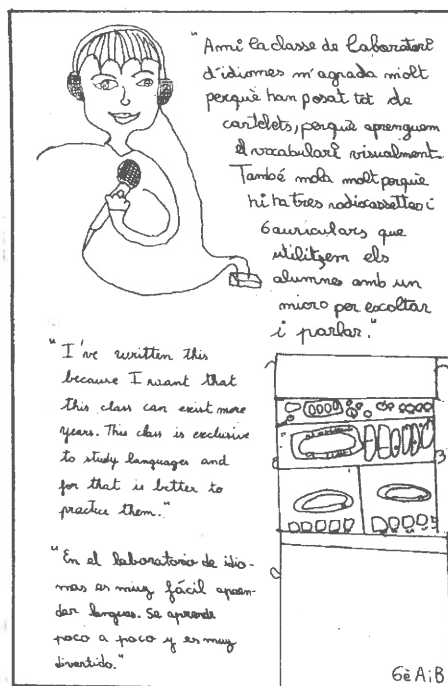 "A mi la classe de laboratori
d'idiomes m'agrada molt
perquè han posat tot de
cartelets, perquè aprenguem
el vocabulari visualment.
També mola molt perquè
hi ha tres radiocassettes i
6 auriculars que
utilitzem els
alumnes amb un
micro per escoltar
i parlar."
"I've written this
because I want that
this class can exist more
years. This class is exclusive
to study languages and
for that is better to
practice them."
"En el laboratorio de idio-
mas es muy fácil apren-
der lenguas. Se aprende
poco a poco y es muy
divertido."
6è A i B